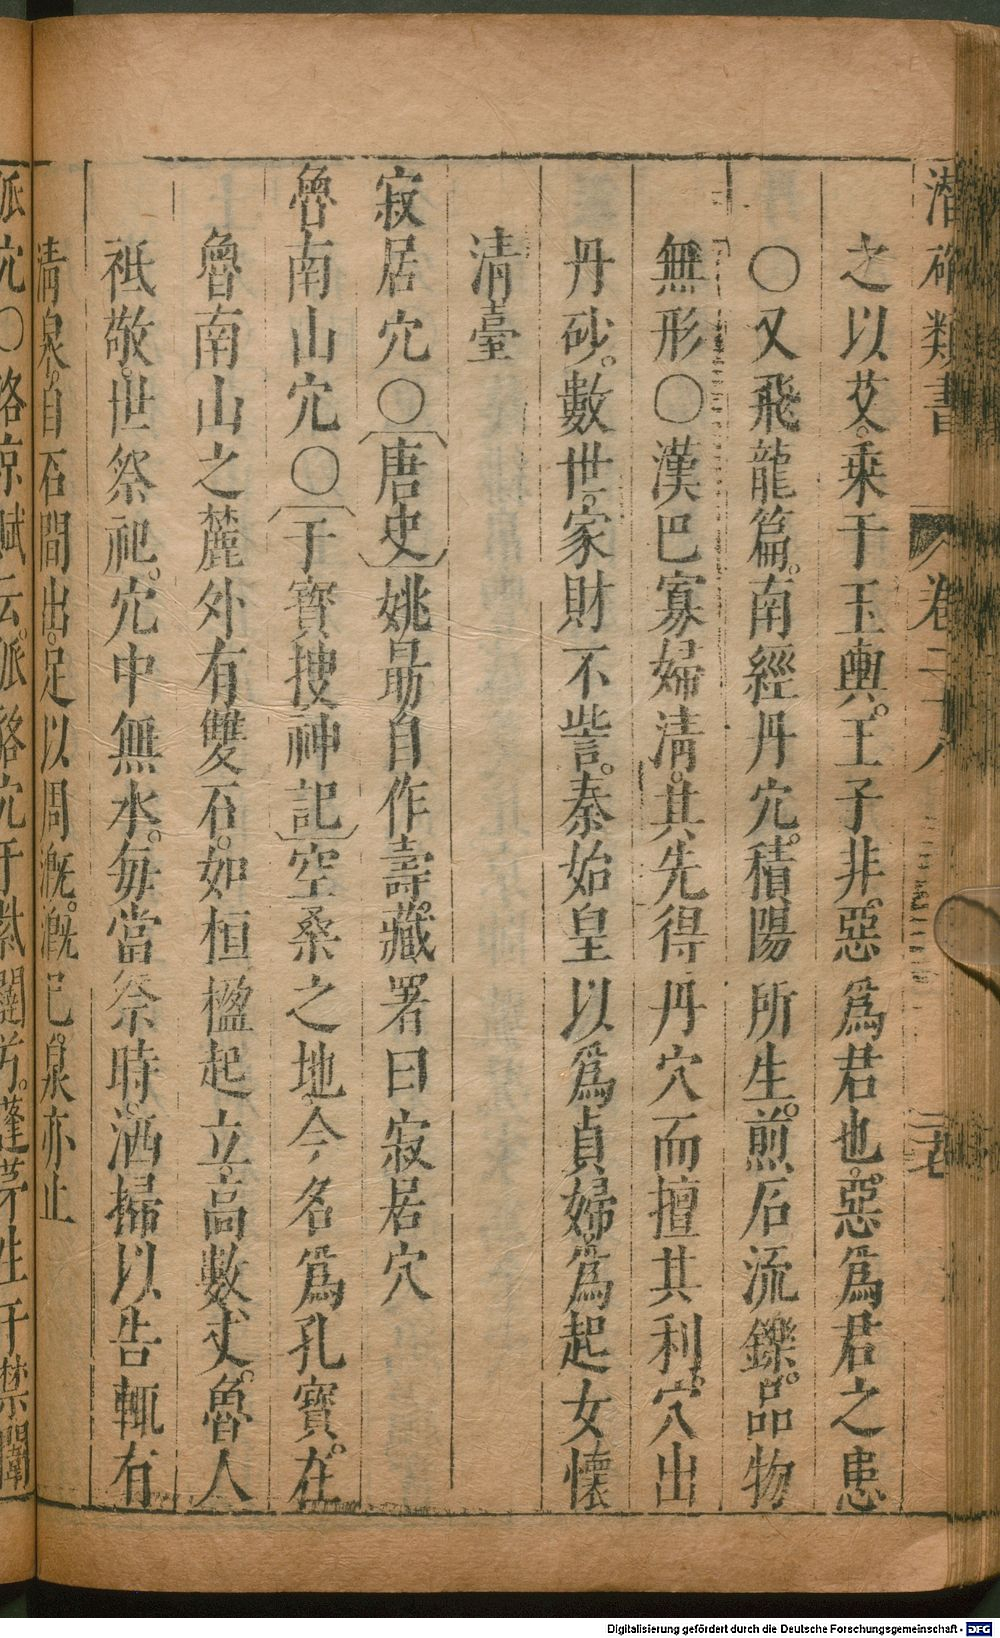 潛確類書 卷二十八
之以艾。乘于玉輿。王子非惡爲君也。惡爲君之患
〇又飛龍篇。南經丹穴。積陽所生。煎石流鑠。品物
無形〇漢巴寡婦清。其先得丹穴而擅其利。穴出
丹砂。數世。家財不訾。秦始皇以爲貞婦。爲起女懷
清臺
寂居穴〇〔唐史〕姚勗自作壽藏。署曰寂居穴
魯南山穴〇〔于寶搜神記〕空桑之地。今名爲孔寶。在
魯南山之麓外有雙石。如桓楹起立。高數丈。魯人
祗敬。世祭祀。穴中無水。每當祭時。洒掃以告輒有
清泉。自石間出。足以周漑。漑已。泉亦止
〇 賦云。 于紫闥兮。蓬茅生于禁闈
Digitalisierung gefördert durch die Deutsche Forschungsgemeinschaft - DFG